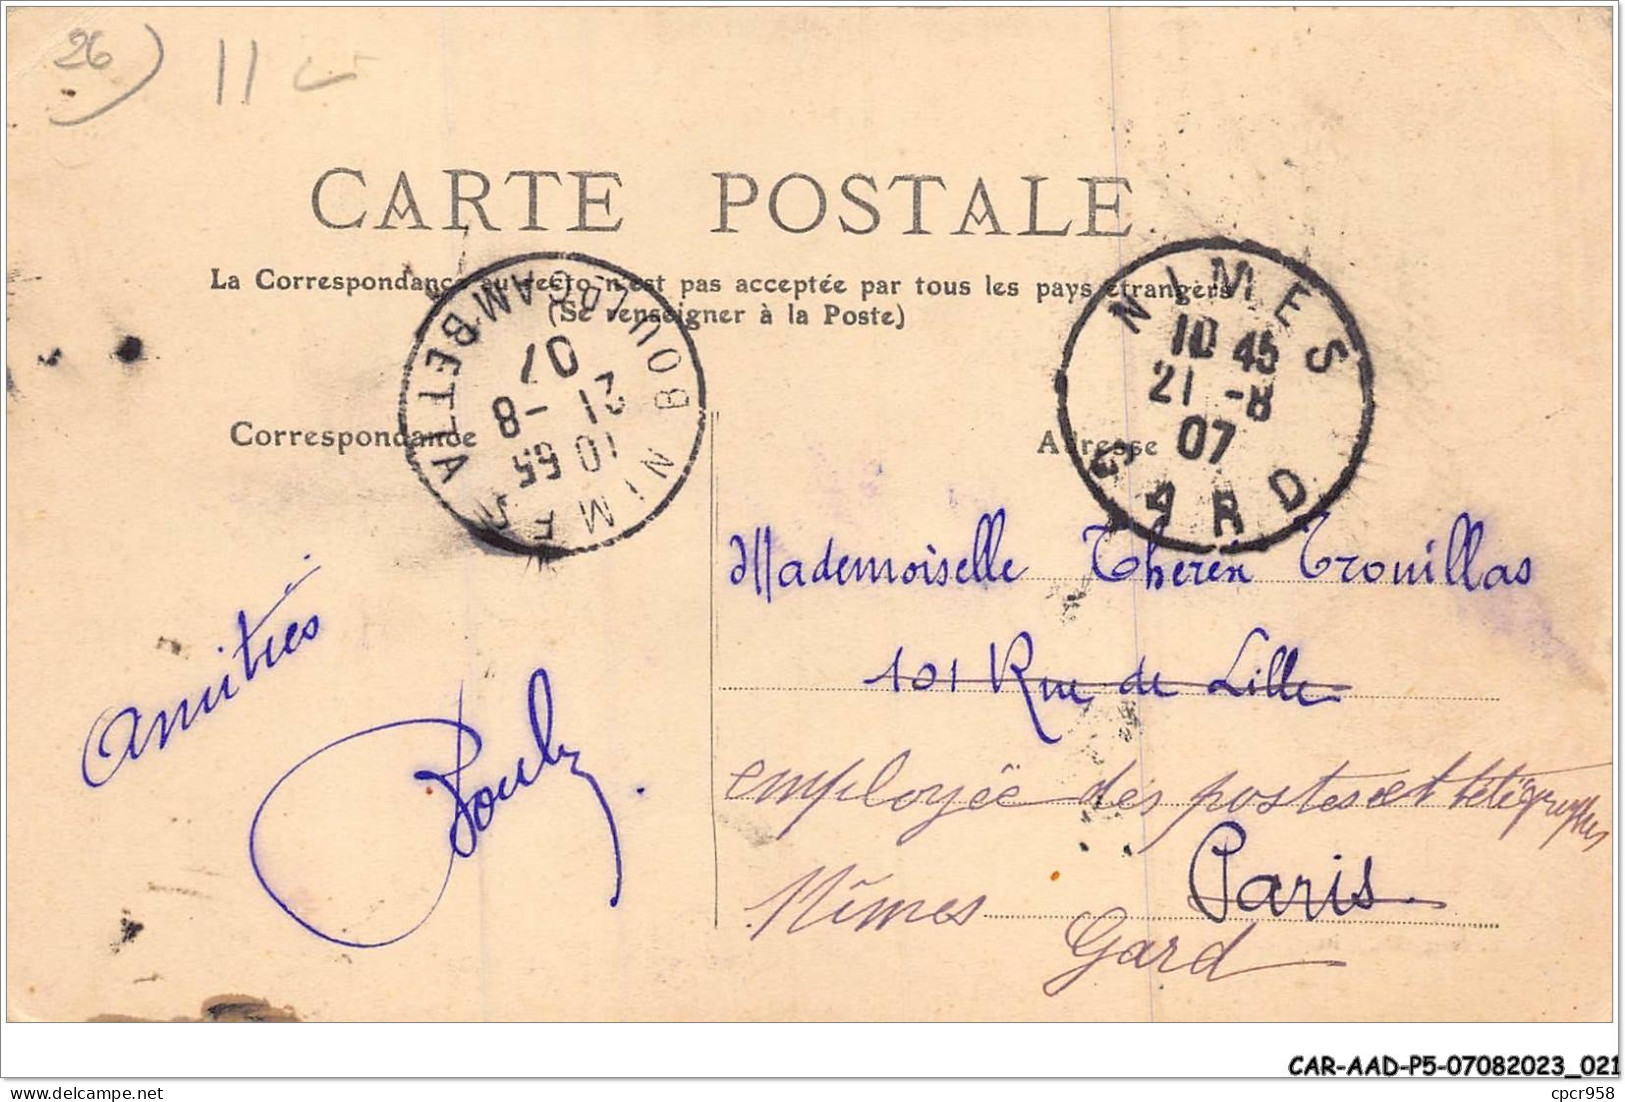 26) 11
CARTE POSTALE
La Correspondance au recto n'est pas acceptée par tous les pays étrangers
(Se renseigner à la Poste)
NIMES
10 45
21 -8
07
GARD
NIMES BOULD GAMBETTA
10 55
21 -8
07
Correspondance
Adresse
Mademoiselle Trouillas
101 Rue de Lille
employée des postes et télégraphes
Paris
Nîmes
Gard
Amitiés
CAR-AAD-P5-07082023_021
cpcr958